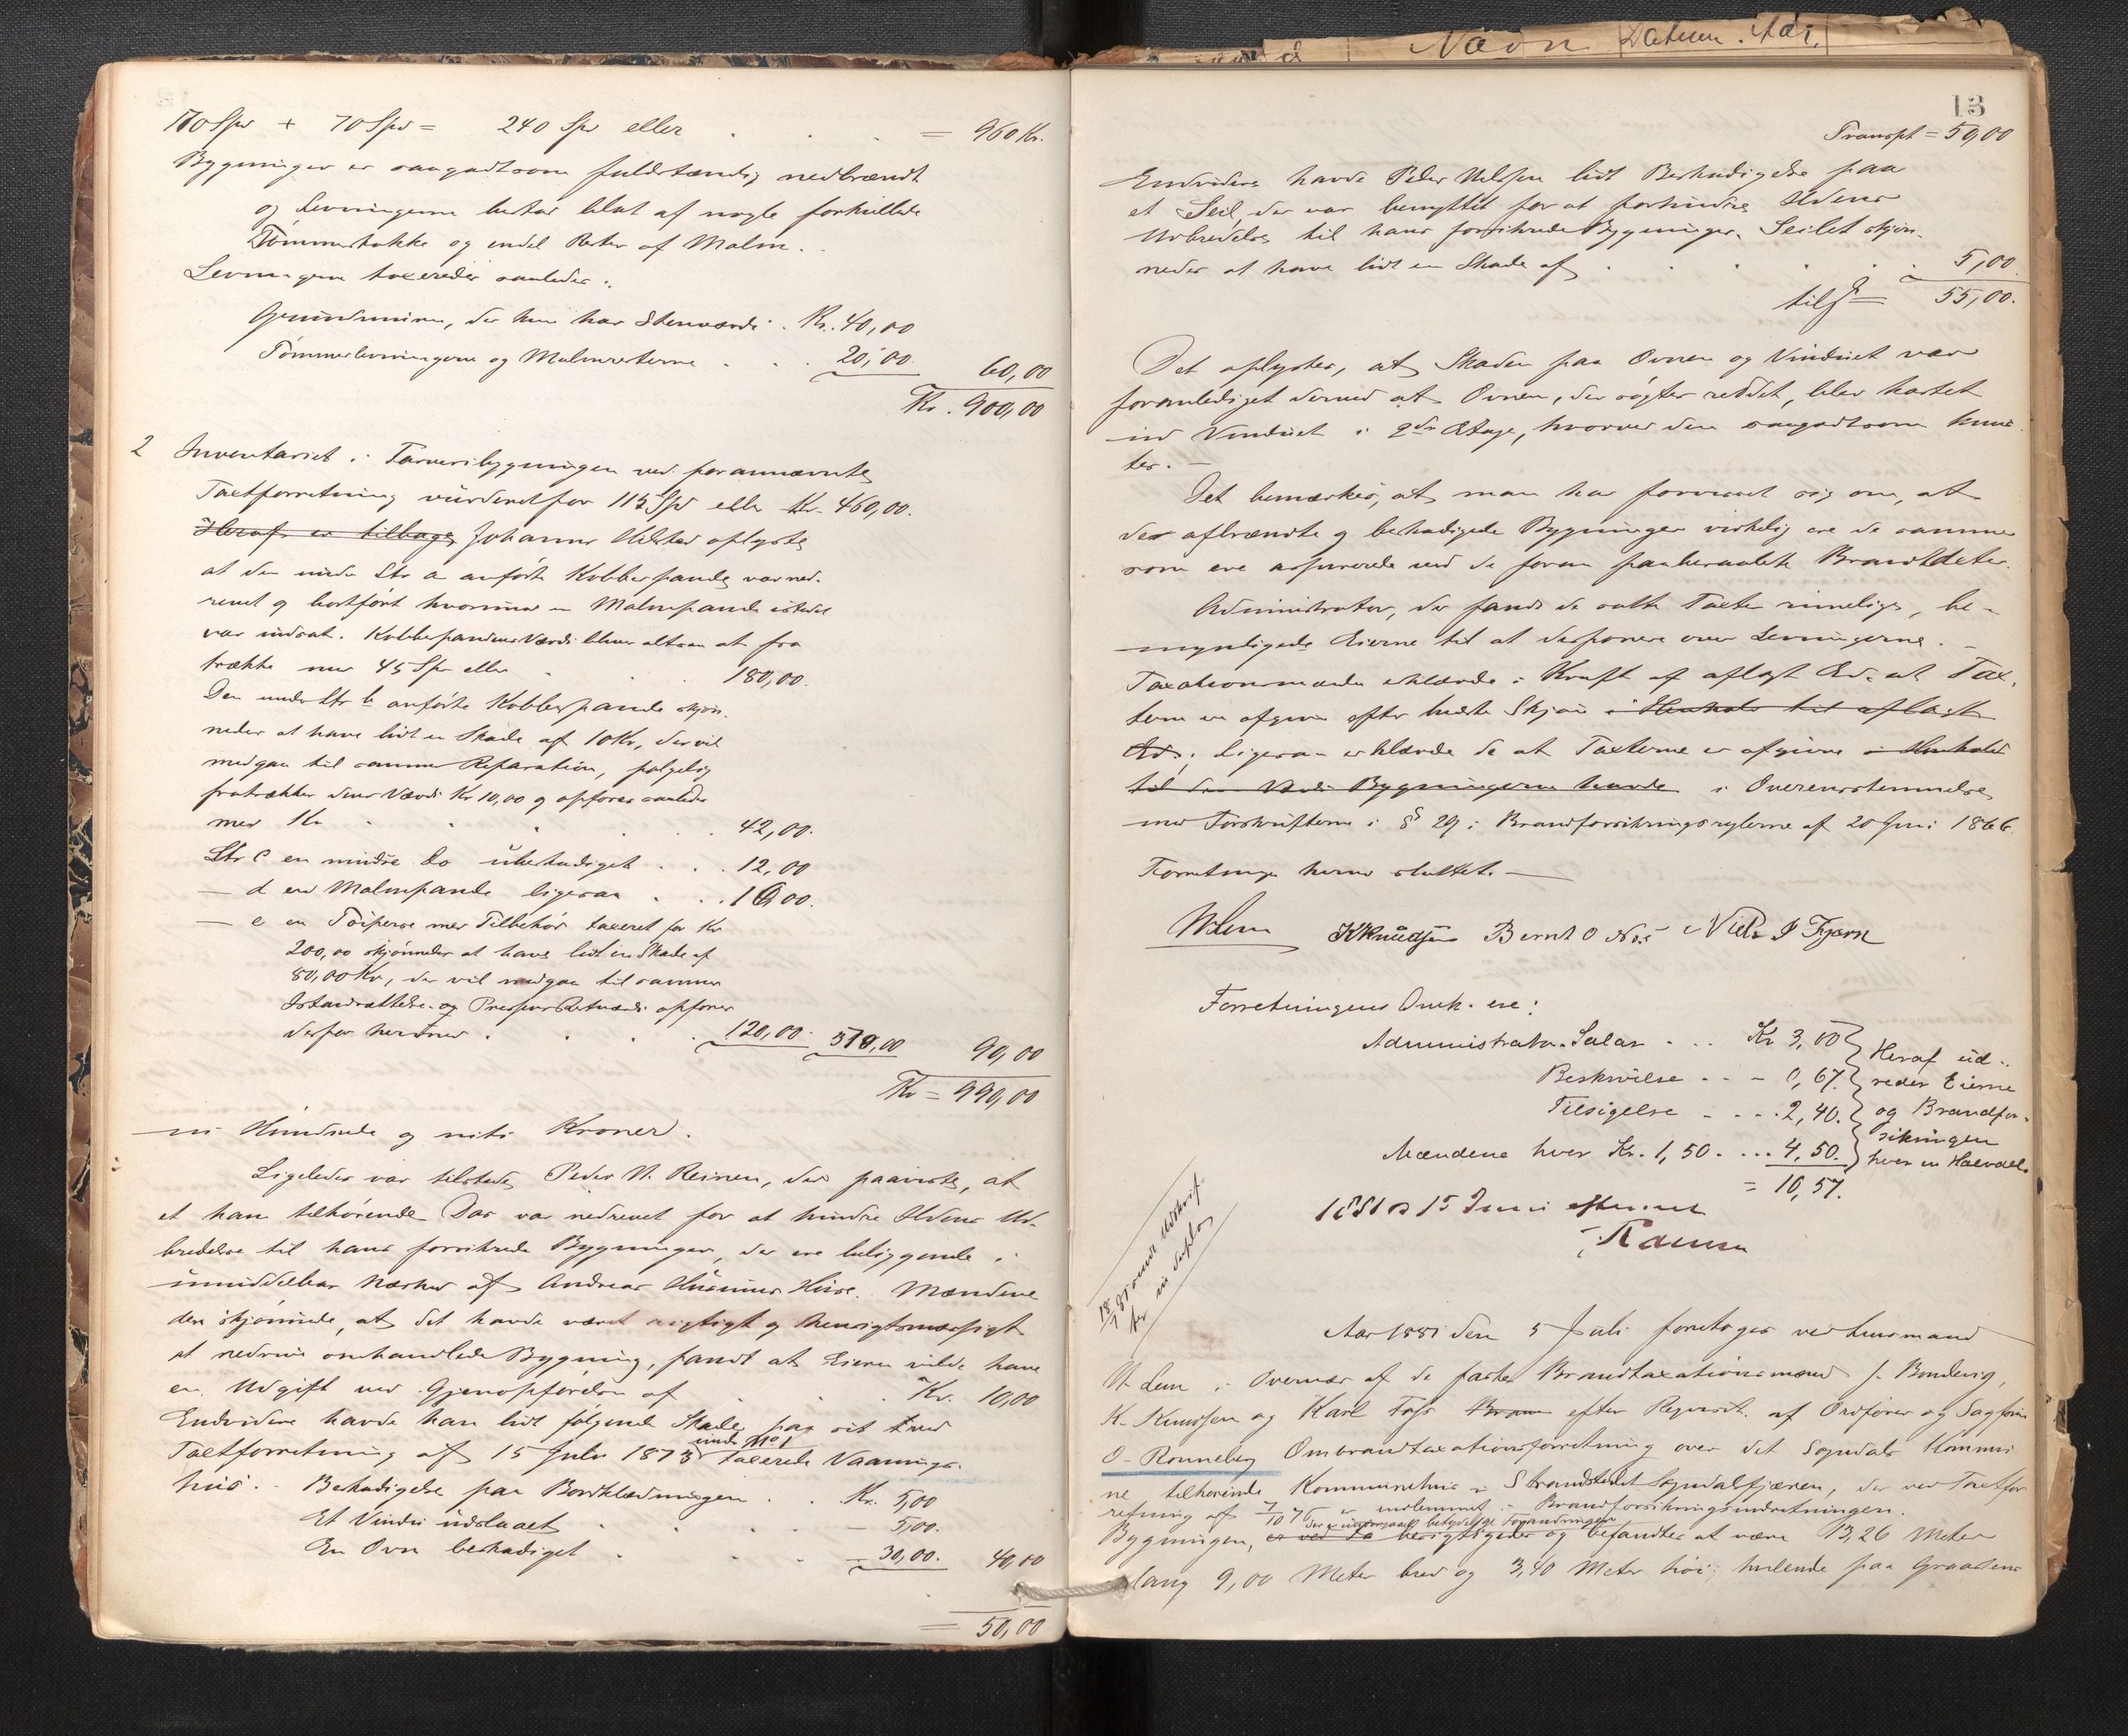 170 Spd + 70 Spd = 240 Spd eller . . . = 960 Kr.
Bygningen er saagodtsom fuldstændig nedbrændt
og Levningerne bestaar blot af nogle forkullede
Tømmerstokke og endel Rester af Malm.
Levningerne taxeredes saaledes:
Grundmuren, der kun har Stenværdi . Kr. 40,00
Tømmerlevningerne og Malmresterne . . . 20,00 60,00
Kr. 900,00
2 Inventariet i Farveribygningen ved forannævnte
Taxtforretning vurderet for 115 Spd eller Kr. 460,00.
Heraf er tilbage Johannes oplyste
at den under Litr a anførte Kobberpande var ned-
revet og bortført hvorimod en Malmpande istedet
var indsat. Kobberpandens Værdi bliver altsaa at fra
trække med 45 Spd eller . . . 180,00.
Den under Litr b anførte Kobberpande skjøn-
nedes at have lidt en Skade af 10 Kr, der vil
medgaa til sammes Reparation, følgelig
fratrækkes dens Værdi Kr 10,00 og opføres saaledes
med Kr . . . . . 42,00.
Litr c en mindre do ubeskadiget . . . 12,00
— d en Malmpande ligesaa . . . 16,00.
— e en Tøipresse med Tilbehør taxeret for Kr
200,00 skjønnedes at have lidt en Skade af
80,00 Kr, der vil medgaa til sammes
Istandsættelse og Pressens Restværdi opføres
derfor herved med . . . 120,00. 370,00 90,00
Kr = 990,00
ni Hundrede og niti Kroner.
Ligeledes var tilstede Peder N. Reinen, der paaviste, at
et ham tilhørende Das var nedrevet for at hindre Ildens Ud-
bredelse til hans forsikrede Bygninger, der ere beliggende i
umiddelbar Nærhed af Andreas Husumes Huse. Mændene
der skjønnede, at det havde været nigtigt og hensigtsmæssigt
at nedrive omhandlede Bygning, fandt at Eieren vilde have
en Udgift ved Gjenopførelsen af . . . Kr. 10,00
Endvidere havde han lidt følgende Skade paa sit ved
Taxtforretning af 15 Juli 1873 under No 1 taxerede Vaanings-
hus. - Beskadigelse paa Bordklædningen . . Kr. 5,00
Et Vindu udslaaet . . . — 5,00.
En Ovn beskadiget . . . — 30,00. 40,00
= 50,00
13
Transpt = 50,00
Endvidere havde Peder Nelsen lidt Beskadigelse paa
et Seil, der var benyttet for at forhindre Ildens
Udbredelse til hans forsikrede Bygninger. Seilet skjøn-
nedes at have lidt en Skade af . . . . 5,00
tils = 55,00.
Det oplystes, at Skaden paa Ovnen og Vinduet var
foranlediget derved at Ovnen, der søgtes reddet, blev kastet
ud Vinduet i 2den Etage, hvorved den saagodtsom knus-
tes. —
Det bemærkes, at man har forvisset sig om, at
de afbrændte og beskadigede Bygninger virkelig ere de samme
som ere assurerede ved de foran paaberaabte Brandtaxter.
Administrator, der fandt de satte Taxter rimelige, be-
myndigede Eierne til at disponere over Levningerne. —
Taxationsmændene erklærede i Kraft af aflagt Ed at Tax-
terne ere afgivne efter bedste Skjøn i Henhold til aflagt
Ed; ligesaa erklærede de at Taxterne er afgivne i Henhold
til den Værdi Bygningerne havde i Overensstemmelse
med Forskrifterne i § 29 i Brandforsikringsreglerne af 20 Juni 1866.
Forretningen herved sluttet. —
N Lem K Knudsen Bernt O Nes Niels J Fjærn
Forretningens Omk. ere:
Administrators Salær . . . Kr 3,00 } Heraf ud-
Beskrivelse . . - 0,67. } reder Eierne
Tilsigelse - . . . 2,40. } og Brandfor-
sikringen
Mændene hver Kr. 1,50 . . . . 4,50. } hver en Halvdel.
= 10,57.
1881 15 Juni eftersaaet
18/7 81 sendt Udskrift
ter in duplo
Aar 1881 den 5 Juli foretoges ved Lensmand
N. Lem i Overvær af de faste Brandtaxationsmænd J. Bondevig,
K. Knudsen og Karl Foss Bran efter Reqvisit. af Ordfører og Sagfører
O. Ronneberg Ombrandtaxationsforretning over det Sogndals Kommu
ne tilhørende Kommunehus i Strandstedet Sogndalsfjæren, der ved Taxtfor
retning af 7/10 75 er indlemmet i Brandforsikringsindretningen.
der er undergaaet betydelige Forandringer
Bygningen, er ved Ta besigtigedes og befandtes at være 13,26 Meter
lang 9,00 Meter bred og 3,40 Meter høi; hvilende paa Graastens
Navn Datum. Aar.